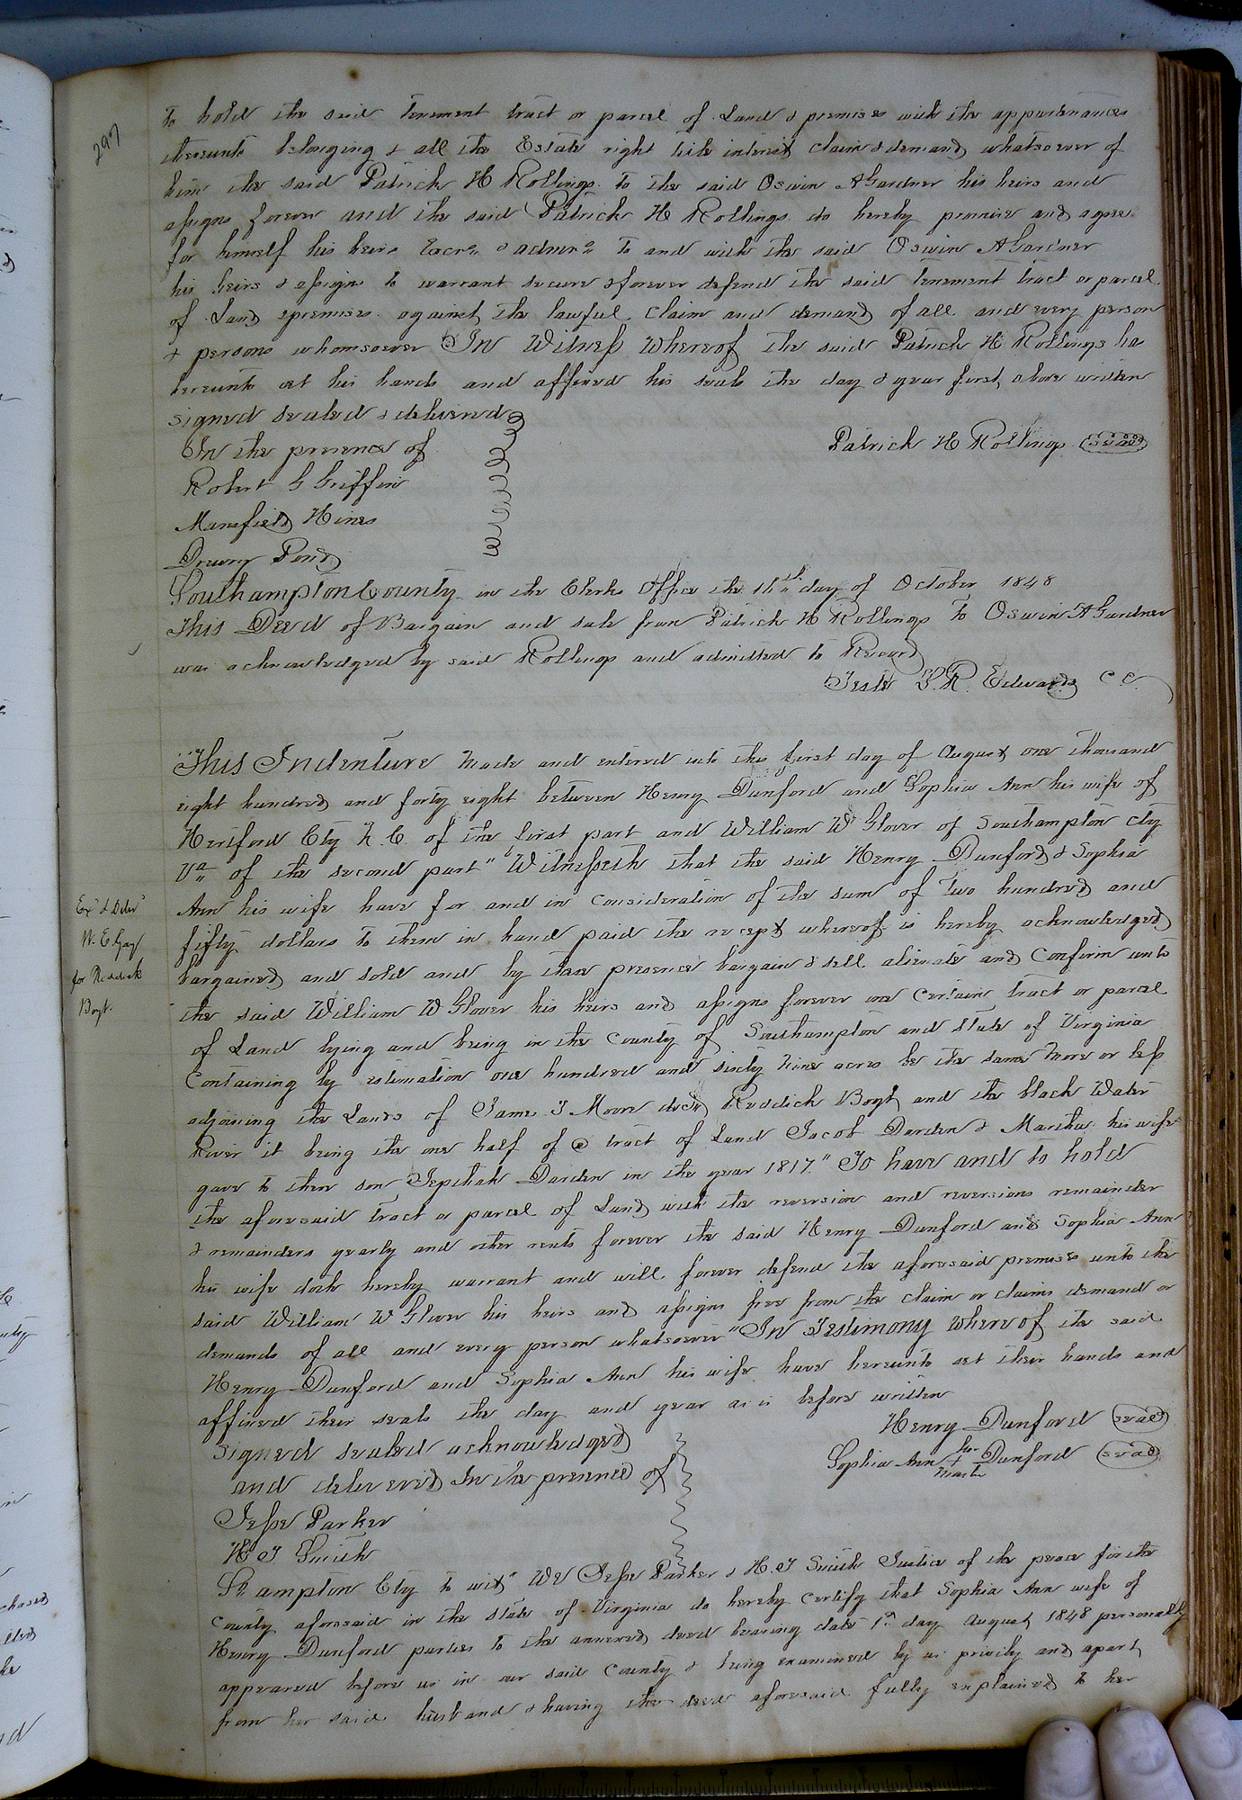 297
to hold the said tenement tract or parcel of Land & premises with the appurtenances
thereunto belonging & all the Estate right title interest claim & demand whatsoever of
him the said Patrick H Rollings to the said Oswin A Gardner his heirs and
assigns forever and the said Patrick H Rollings do hereby promise and agree
for himself his heirs Excrs & admrs to and with the said Oswin A Gardner
his heirs & assigns to warrant secure & forever defend the said tenement tract or parcel
of Land & premises against the lawful claim and demand of all and every person
& persons whomsoever In Witness Whereof the said Patrick H Rollings ha
hereunto set his hands and affixed his seals the day & year first above written
signed sealed & delivered
In the presence of
Patrick H Rollings (seal)
Robert G Griffin
Mansfield Hines
Drewry Pond
Southampton County in the Clerks Office the 16th day of October 1848
This Deed of Bargain and sale from Patrick H Rollings to Oswin A Gardner
was acknowledged by said Rollings and admitted to Record
Teste L. R. Edwards CC
This Indenture Made and entered into this first day of August one thousand
eight hundred and forty eight between Henry Dunford and Sophia Ann his wife of
Hertford Cty N. C. of the first part and William W Glover of Southampton cty
Va of the second part" Witnesseth that the said Henry Dunford & Sophia
Ann his wife have for and in consideration of the sum of two hundred and
fifty dollars to them in hand paid the recept whereof is hereby acknowledged
bargained and sold and by these presence bargain & sell alienate and Confirm unto
the said William W Glover his heirs and assigns forever one certain tract or parcel
of Land lying and being in the County of Southampton and State of Virginia
Containing by estimation one hundred and sixty nine acres be the same more or less
adjoining the Lands of James J Moore decd Reddick Boyt and the black Water
River it being the one half of a tract of Land Jacob Darden & Martha his wife
gave to their son Jepthah Darden in the year 1817." To have and to hold
the aforesaid tract or parcel of Land with the reversion and reversions remainder
& remainders yearly and other rents forever the said Henry Dunford and Sophia Ann
his wife doth hereby warrant and will forever defend the aforesaid premises unto the
said William W Glover his heirs and assigns free from the claim or claims demand or
demands of all and every person whatsoever" In Testimony Whereof the said
Henry Dunford and Sophia Ann his wife have hereunto set their hands and
affixed their seals the day and year as is before written
Signed sealed acknowledged
and delivered In the presence of
Henry Dunford (seal)
Sophia Ann her + mark Dunford (seal)
Jesse Parker
H J Smith
Sthampton Cty to wit" We Jesse Parker & H. J Smith Justice of the peace for the
County aforesaid in the state of Virginia do hereby certify that Sophia Ann wife of
Henry Dunford parties to the annexed deed bearing date 1st day August 1848 personally
appeared before us in our said County & being examined by us privily and apart
from her said husband & having the deed aforesaid fully explained to her
Exd & Deld
W. E. Gay
for Reddick
Boyt.